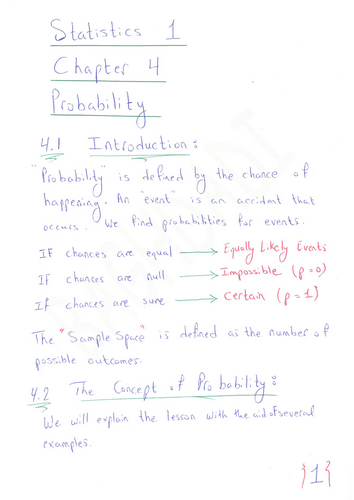 Statistics 1
Chapter 4
Probability
4.1 Introduction:
"Probability" is defined by the chance of
happening. An "event" is an accident that
occurs. We find probabilities for events.
IF chances are equal → Equally Likely Events
IF chances are null → Impossible (p=0)
If chances are sure → Certain (p=1)
The "Sample Space" is defined as the number of
possible outcomes.
4.2 The Concept of Probability:
We will explain the lesson with the aid of several
examples.
}1{